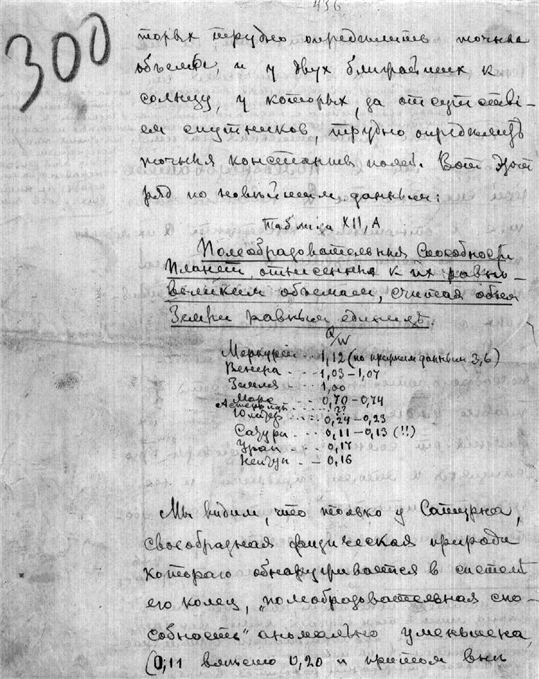 436
300
торых трудно определить точные
объемы, и у двух ближайших к
солнцу, у которых, за отсутстві-
ем спутников, трудно определить
точныя константы полей. Вот этот
ряд по новѣйшим данным:
Таблица XII, А
Полеобразовательныя Способности
Планет, отнесенныя к их равно-
великим объемам, считая объем
Земли равным единицѣ.
Q/W
Меркурій - - 1,12 (по прежним данным 3,6)
Венера - - - 1,03 – 1,07
Земля - - - 1,00
Марс - - - 0,70 – 0,74
Астероиды - - - ??
Юпитер - - - 0,24 – 0,23
Сатурн - - - 0,11 – 0,13 (!!)
Уран - - - 0,17
Нептун - - 0,16
Мы видим, что только у Сатурна,
своеобразная физическая природа
котораго обнаруживается в системѣ
его колец, „полеобразовательная спо-
собность" аномально уменьшена,
(0,11 вмѣсто 0,20 и притом внѣ